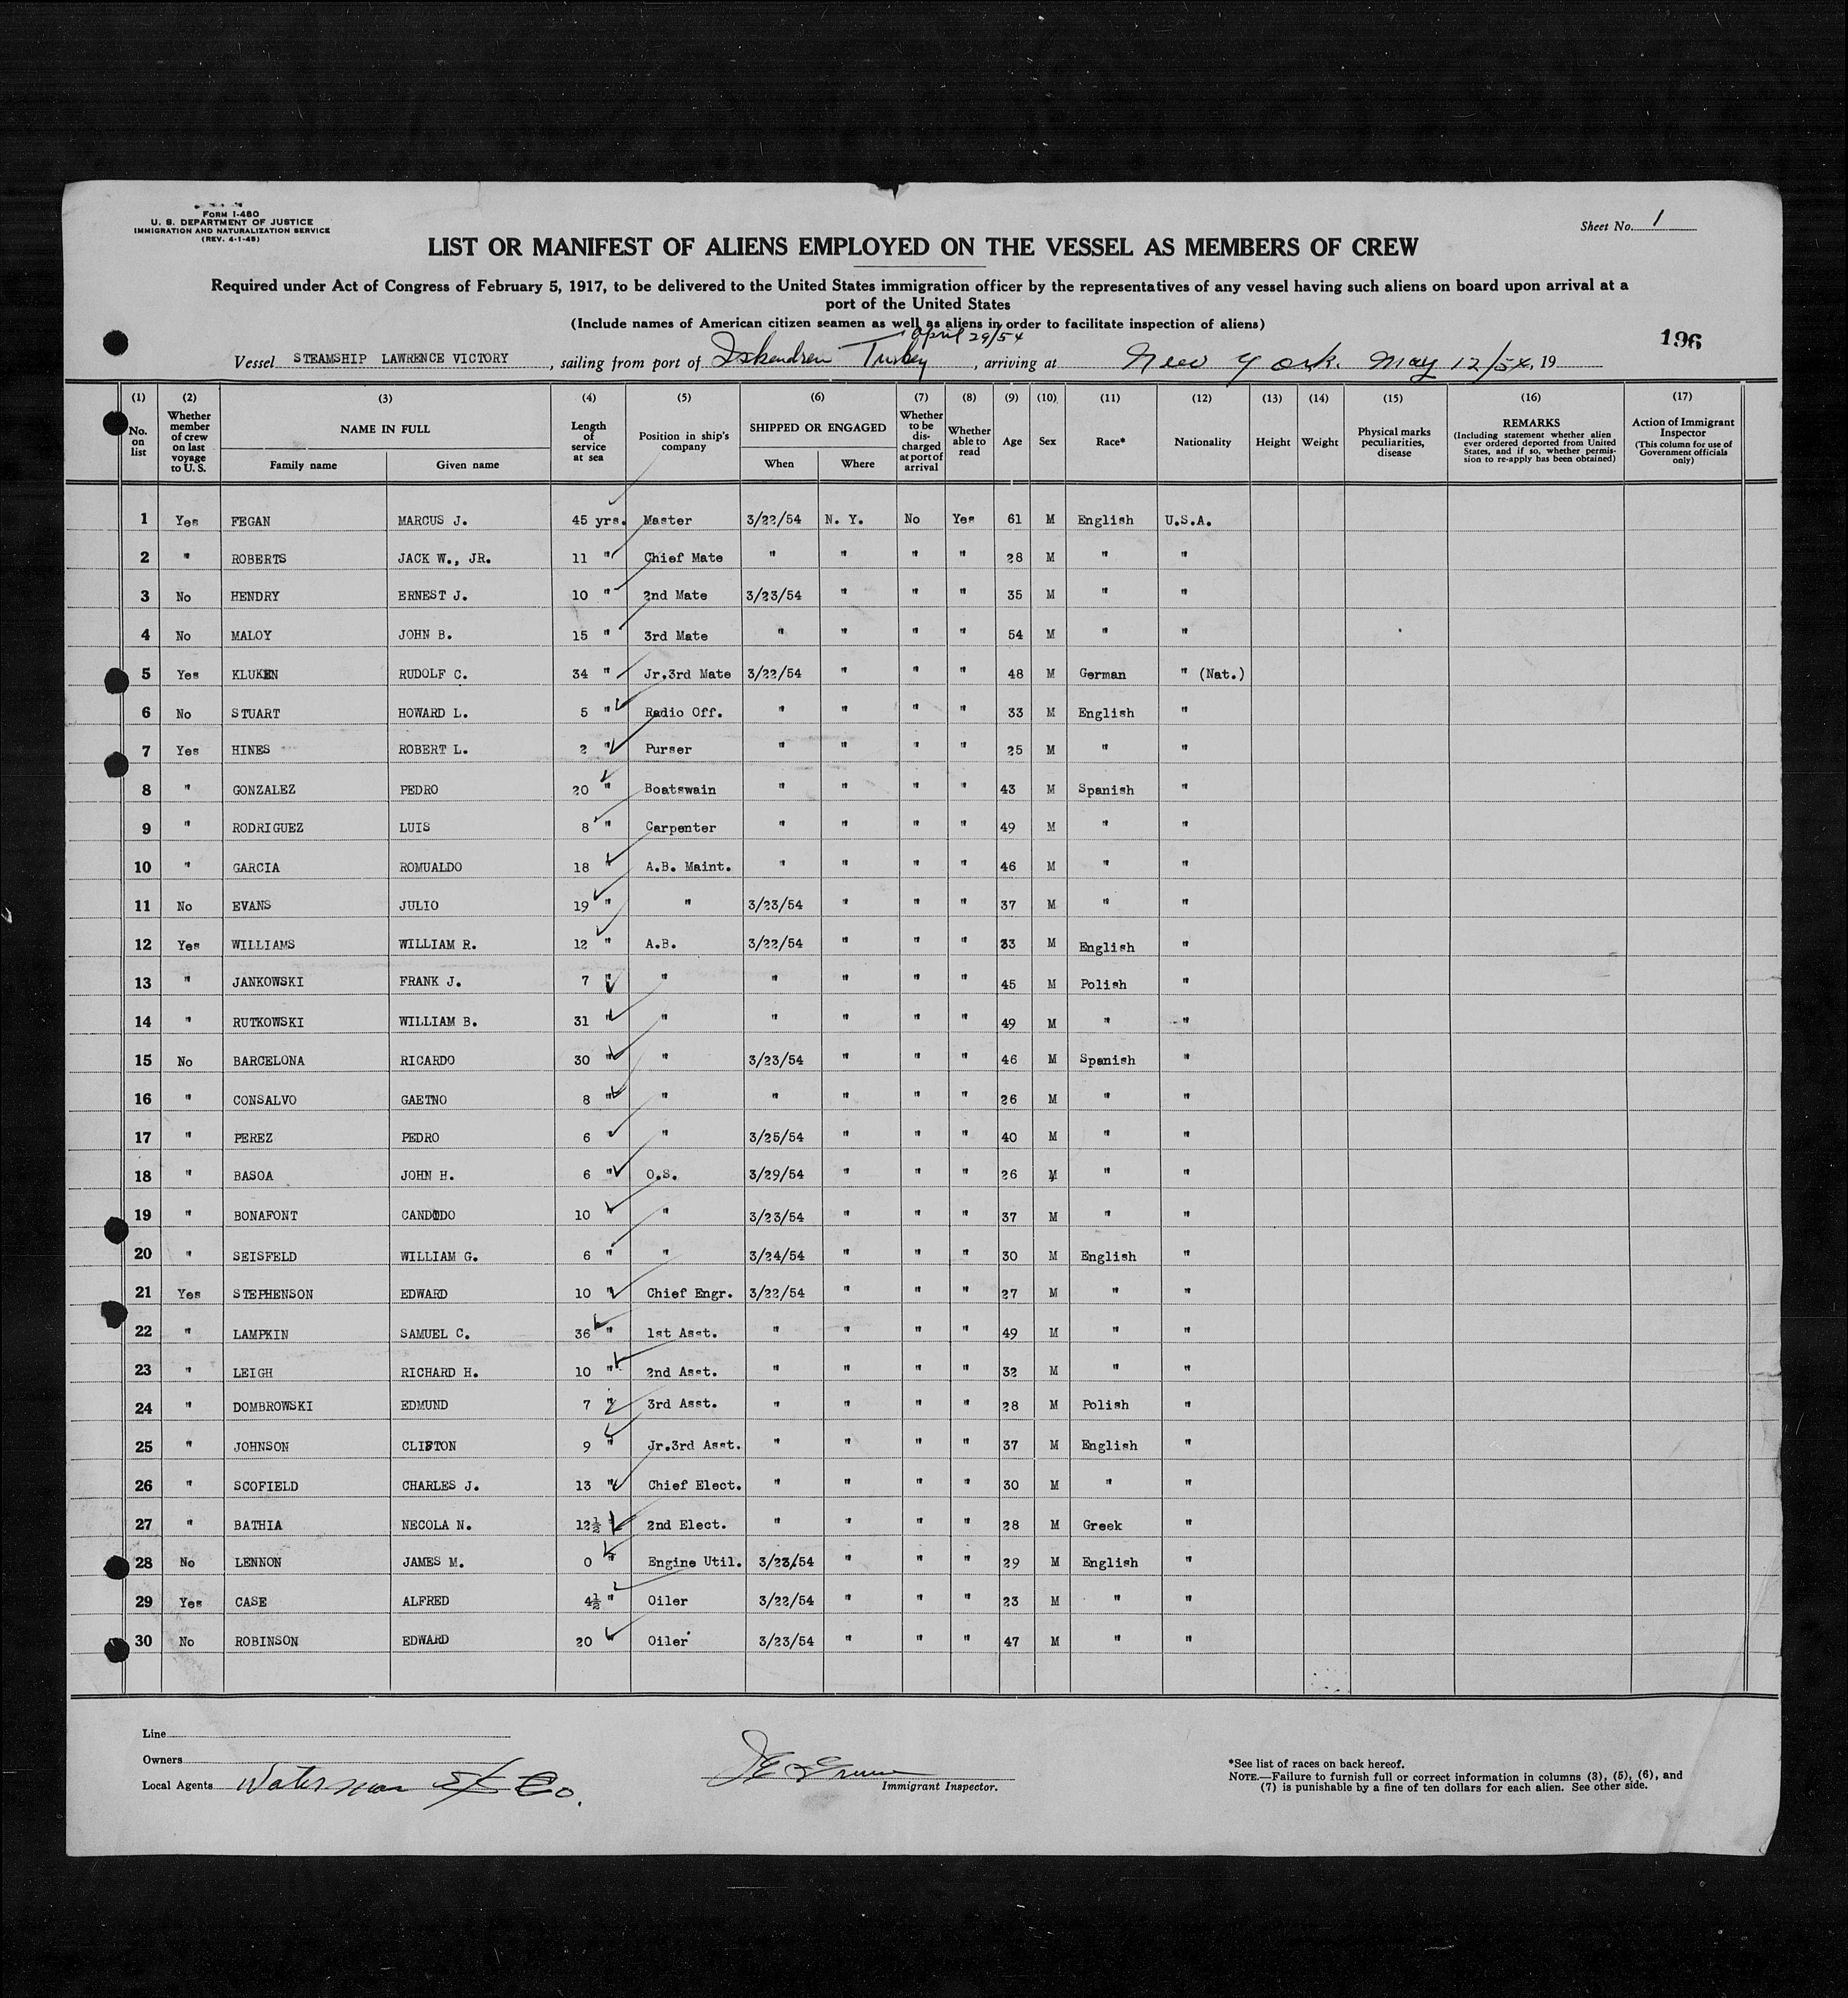 FORM I-480
U. S. DEPARTMENT OF JUSTICE
IMMIGRATION AND NATURALIZATION SERVICE
(REV. 4-1-45)
Sheet No. 1
LIST OR MANIFEST OF ALIENS EMPLOYED ON THE VESSEL AS MEMBERS OF CREW
Required under Act of Congress of February 5, 1917, to be delivered to the United States immigration officer by the representatives of any vessel having such aliens on board upon arrival at a
port of the United States
(Include names of American citizen seamen as well as aliens in order to facilitate inspection of aliens)
196
April 29/54
Vessel STEAMSHIP LAWRENCE VICTORY, sailing from port of Iskendren Turkey, arriving at New York. May 12/54, 19
(1) No. on list (2) Whether member of crew on last voyage to U. S. (3) NAME IN FULL Family name Given name (4) Length of service at sea (5) Position in ship's company (6) SHIPPED OR ENGAGED When Where (7) Whether to be discharged at port of arrival (8) Whether able to read (9) Age (10) Sex (11) Race* (12) Nationality (13) Height (14) Weight (15) Physical marks peculiarities, disease (16) REMARKS (Including statement whether alien ever ordered deported from United States, and if so, whether permission to re-apply has been obtained) (17) Action of Immigrant Inspector (This column for use of Government officials only)
1 Yes FEGAN MARCUS J. 45 yrs. Master 3/22/54 N. Y. No Yes 61 M English U.S.A.
2 " ROBERTS JACK W., JR. 11 " Chief Mate " " " " 28 M " "
3 No HENDRY ERNEST J. 10 " 2nd Mate 3/23/54 " " " 35 M " "
4 No MALOY JOHN B. 15 " 3rd Mate " " " " 54 M " "
5 Yes KLUKEN RUDOLF C. 34 " Jr.3rd Mate 3/22/54 " " " 48 M German " (Nat.)
6 No STUART HOWARD L. 5 " Radio Off. " " " " 33 M English "
7 Yes HINES ROBERT L. 2 " Purser " " " " 25 M " "
8 " GONZALEZ PEDRO 20 " Boatswain " " " " 43 M Spanish "
9 " RODRIGUEZ LUIS 8 " Carpenter " " " " 49 M " "
10 " GARCIA ROMUALDO 18 " A.B. Maint. " " " " 46 M " "
11 No EVANS JULIO 19 " " 3/23/54 " " " 37 M " "
12 Yes WILLIAMS WILLIAM R. 12 " A.B. 3/22/54 " " " 33 M English "
13 " JANKOWSKI FRANK J. 7 " " " " " " 45 M Polish "
14 " RUTKOWSKI WILLIAM B. 31 " " " " " " 49 M " "
15 No BARCELONA RICARDO 30 " " 3/23/54 " " " 46 M Spanish "
16 " CONSALVO GAETNO 8 " " " " " " 26 M " "
17 " PEREZ PEDRO 6 " " 3/25/54 " " " 40 M " "
18 " BASOA JOHN H. 6 " O.S. 3/29/54 " " " 26 M " "
19 " BONAFONT CANDIDO 10 " " 3/23/54 " " " 37 M " "
20 " SEISFELD WILLIAM G. 6 " " 3/24/54 " " " 30 M English "
21 Yes STEPHENSON EDWARD 10 " Chief Engr. 3/22/54 " " " 27 M " "
22 " LAMPKIN SAMUEL C. 36 " 1st Asst. " " " " 49 M " "
23 " LEIGH RICHARD H. 10 " 2nd Asst. " " " " 32 M " "
24 " DOMBROWSKI EDMUND 7 " 3rd Asst. " " " " 28 M Polish "
25 " JOHNSON CLIFTON 9 " Jr.3rd Asst. " " " " 37 M English "
26 " SCOFIELD CHARLES J. 13 " Chief Elect. " " " " 30 M " "
27 " BATHIA NECOLA N. 12½ " 2nd Elect. " " " " 28 M Greek "
28 No LENNON JAMES M. 0 " Engine Util. 3/23/54 " " " 29 M English "
29 Yes CASE ALFRED 4½ " Oiler 3/22/54 " " " 23 M " "
30 No ROBINSON EDWARD 20 " Oiler 3/23/54 " " " 47 M " "
Line
Owners
Local Agents Waterman SS Co.
Immigrant Inspector.
*See list of races on back hereof.
NOTE.—Failure to furnish full or correct information in columns (3), (5), (6), and
(7) is punishable by a fine of ten dollars for each alien. See other side.